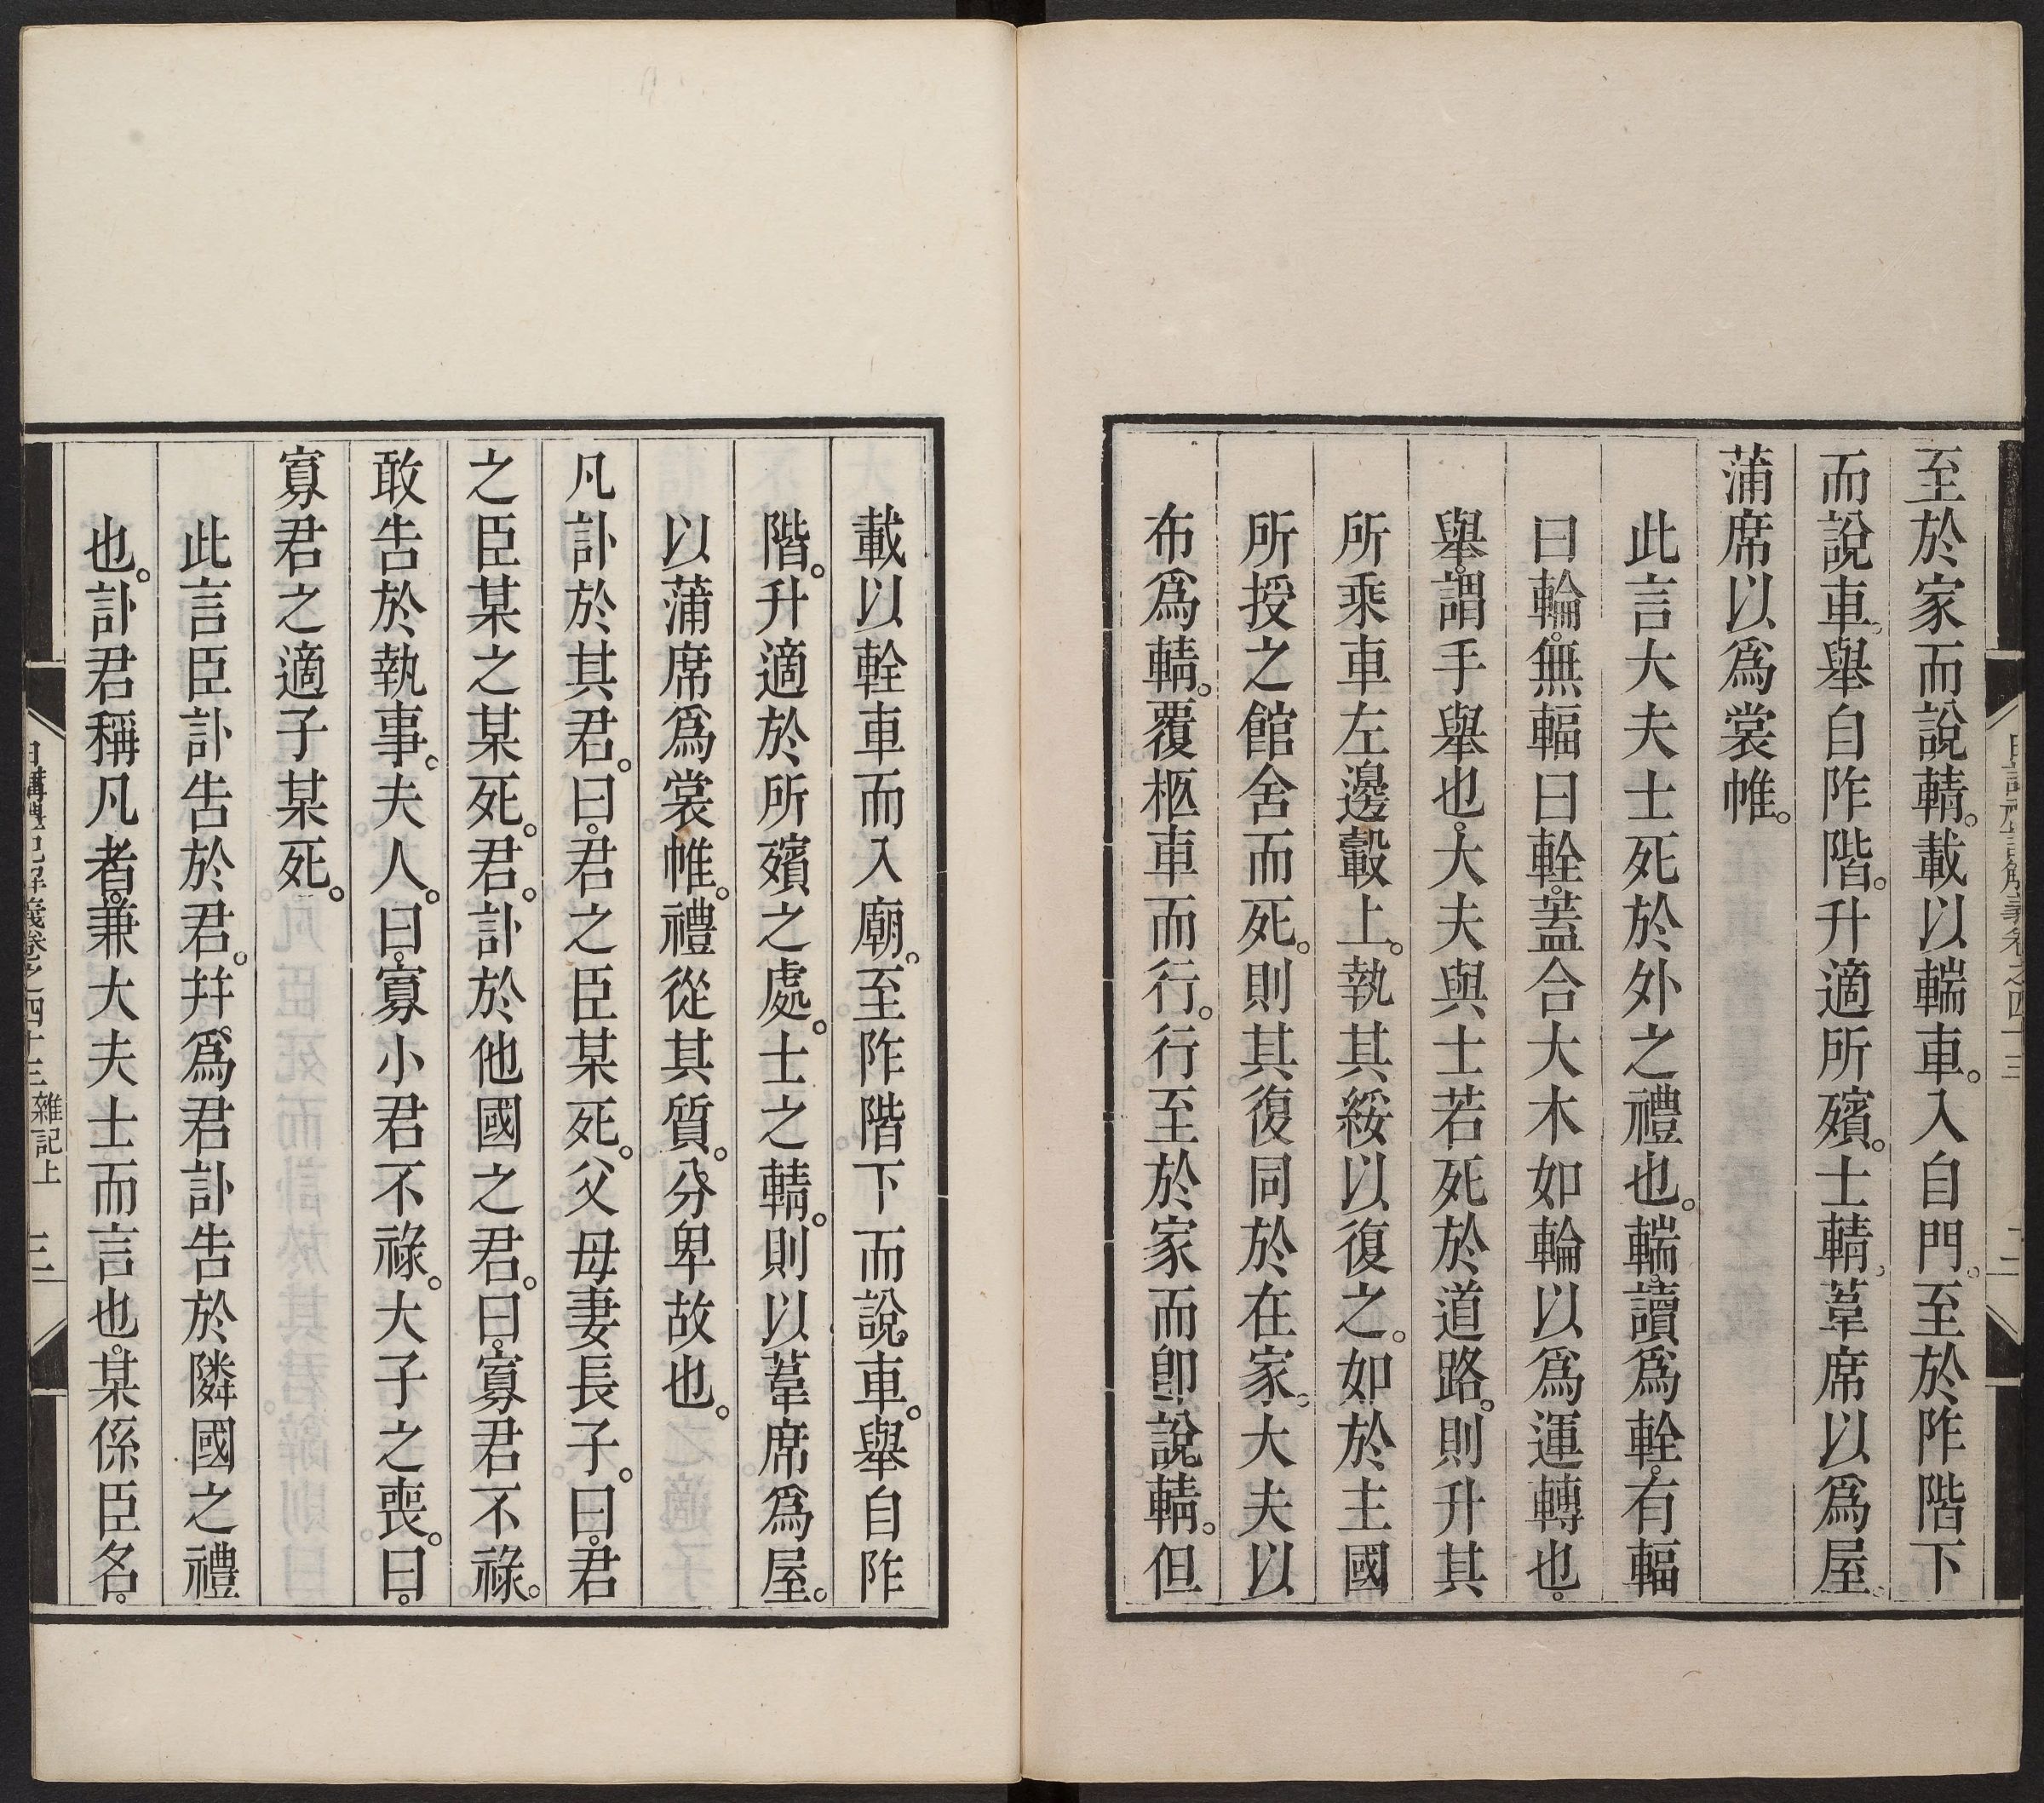 至於家而說輤。載以輲車。入自門。至於阼階下
而說車。舉自阼階。升適所殯。士輤。葦席以爲屋。
蒲席以爲裳帷。
此言大夫士死於外之禮也。輲。讀爲輇。有輻
曰輪。無輻曰輇。蓋合大木如輪以爲運轉也。
舉。謂手舉也。大夫與士若死於道路。則升其
所乘車左邊轂上。執其綏以復之。如於主國
所授之館舍而死。則其復同於在家。大夫以
布爲輤。覆柩車而行。行至於家而卽說輤。但
載以輇車而入廟。至阼階下而說車。舉自阼
階。升適於所殯之處。士之輤。則以葦席爲屋。
以蒲席爲裳帷。禮從其質。分卑故也。
凡訃於其君。曰。君之臣某死。父母妻長子。曰。君
之臣某之某死。君。訃於他國之君。曰。寡君不祿。
敢告於執事。夫人。曰。寡小君不祿。大子之喪。曰。
寡君之適子某死。
此言臣訃告於君。幷爲君訃告於隣國之禮
也。訃君稱凡者。兼大夫士而言也。某係臣名。
日講禮記解義卷之四十三 雜記上 三